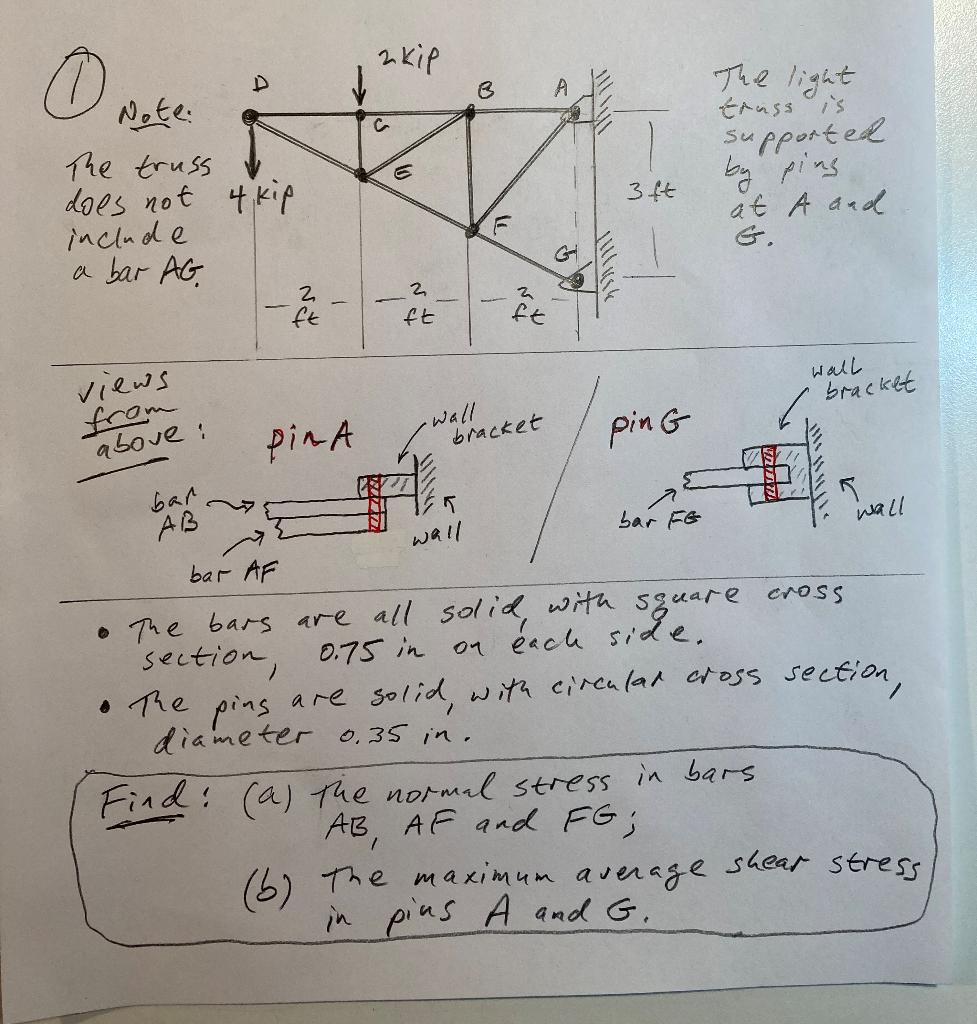 1
2 kip
D
C
B
A
E
F
G
4 kip
3 ft
2 ft
2 ft
2 ft
Note:
The truss
does not
include
a bar AG.
The light
truss is
supported
by pins
at A and
G.
views
from
above:
pin A
wall
bracket
bar
AB
bar AF
wall
pin G
wall
bracket
bar FG
wall
• The bars are all solid, with square cross
section, 0.75 in on each side.
• The pins are solid, with circular cross section,
diameter 0.35 in.
Find: (a) The normal stress in bars
AB, AF and FG;
(b) The maximum average shear stress
in pins A and G.